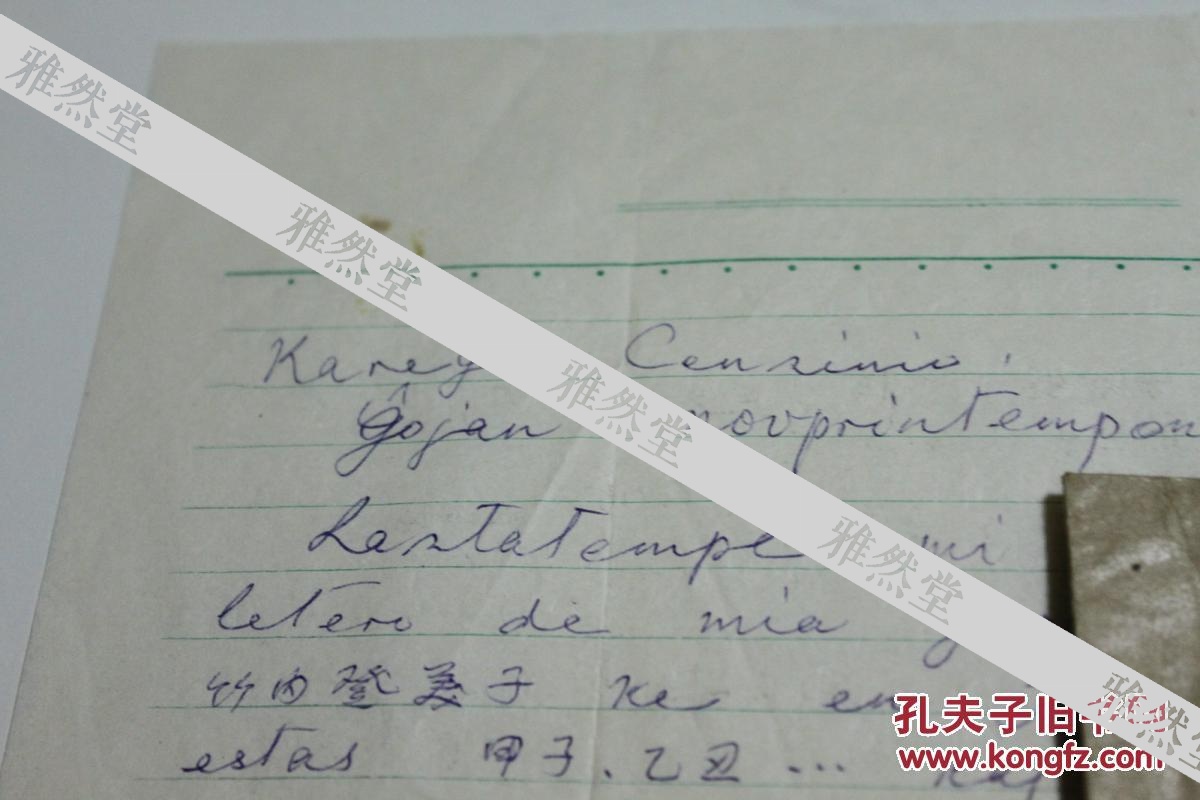 Karej Cenzinio.
Ĝojan novprintempon
Lastatempe mi
letero de mia
竹内登美子 ke en
estas 甲子、乙丑 ... kaj
雅然堂
雅然堂
雅然堂
雅然堂
雅然堂
孔夫子旧书网
www.kongfz.com